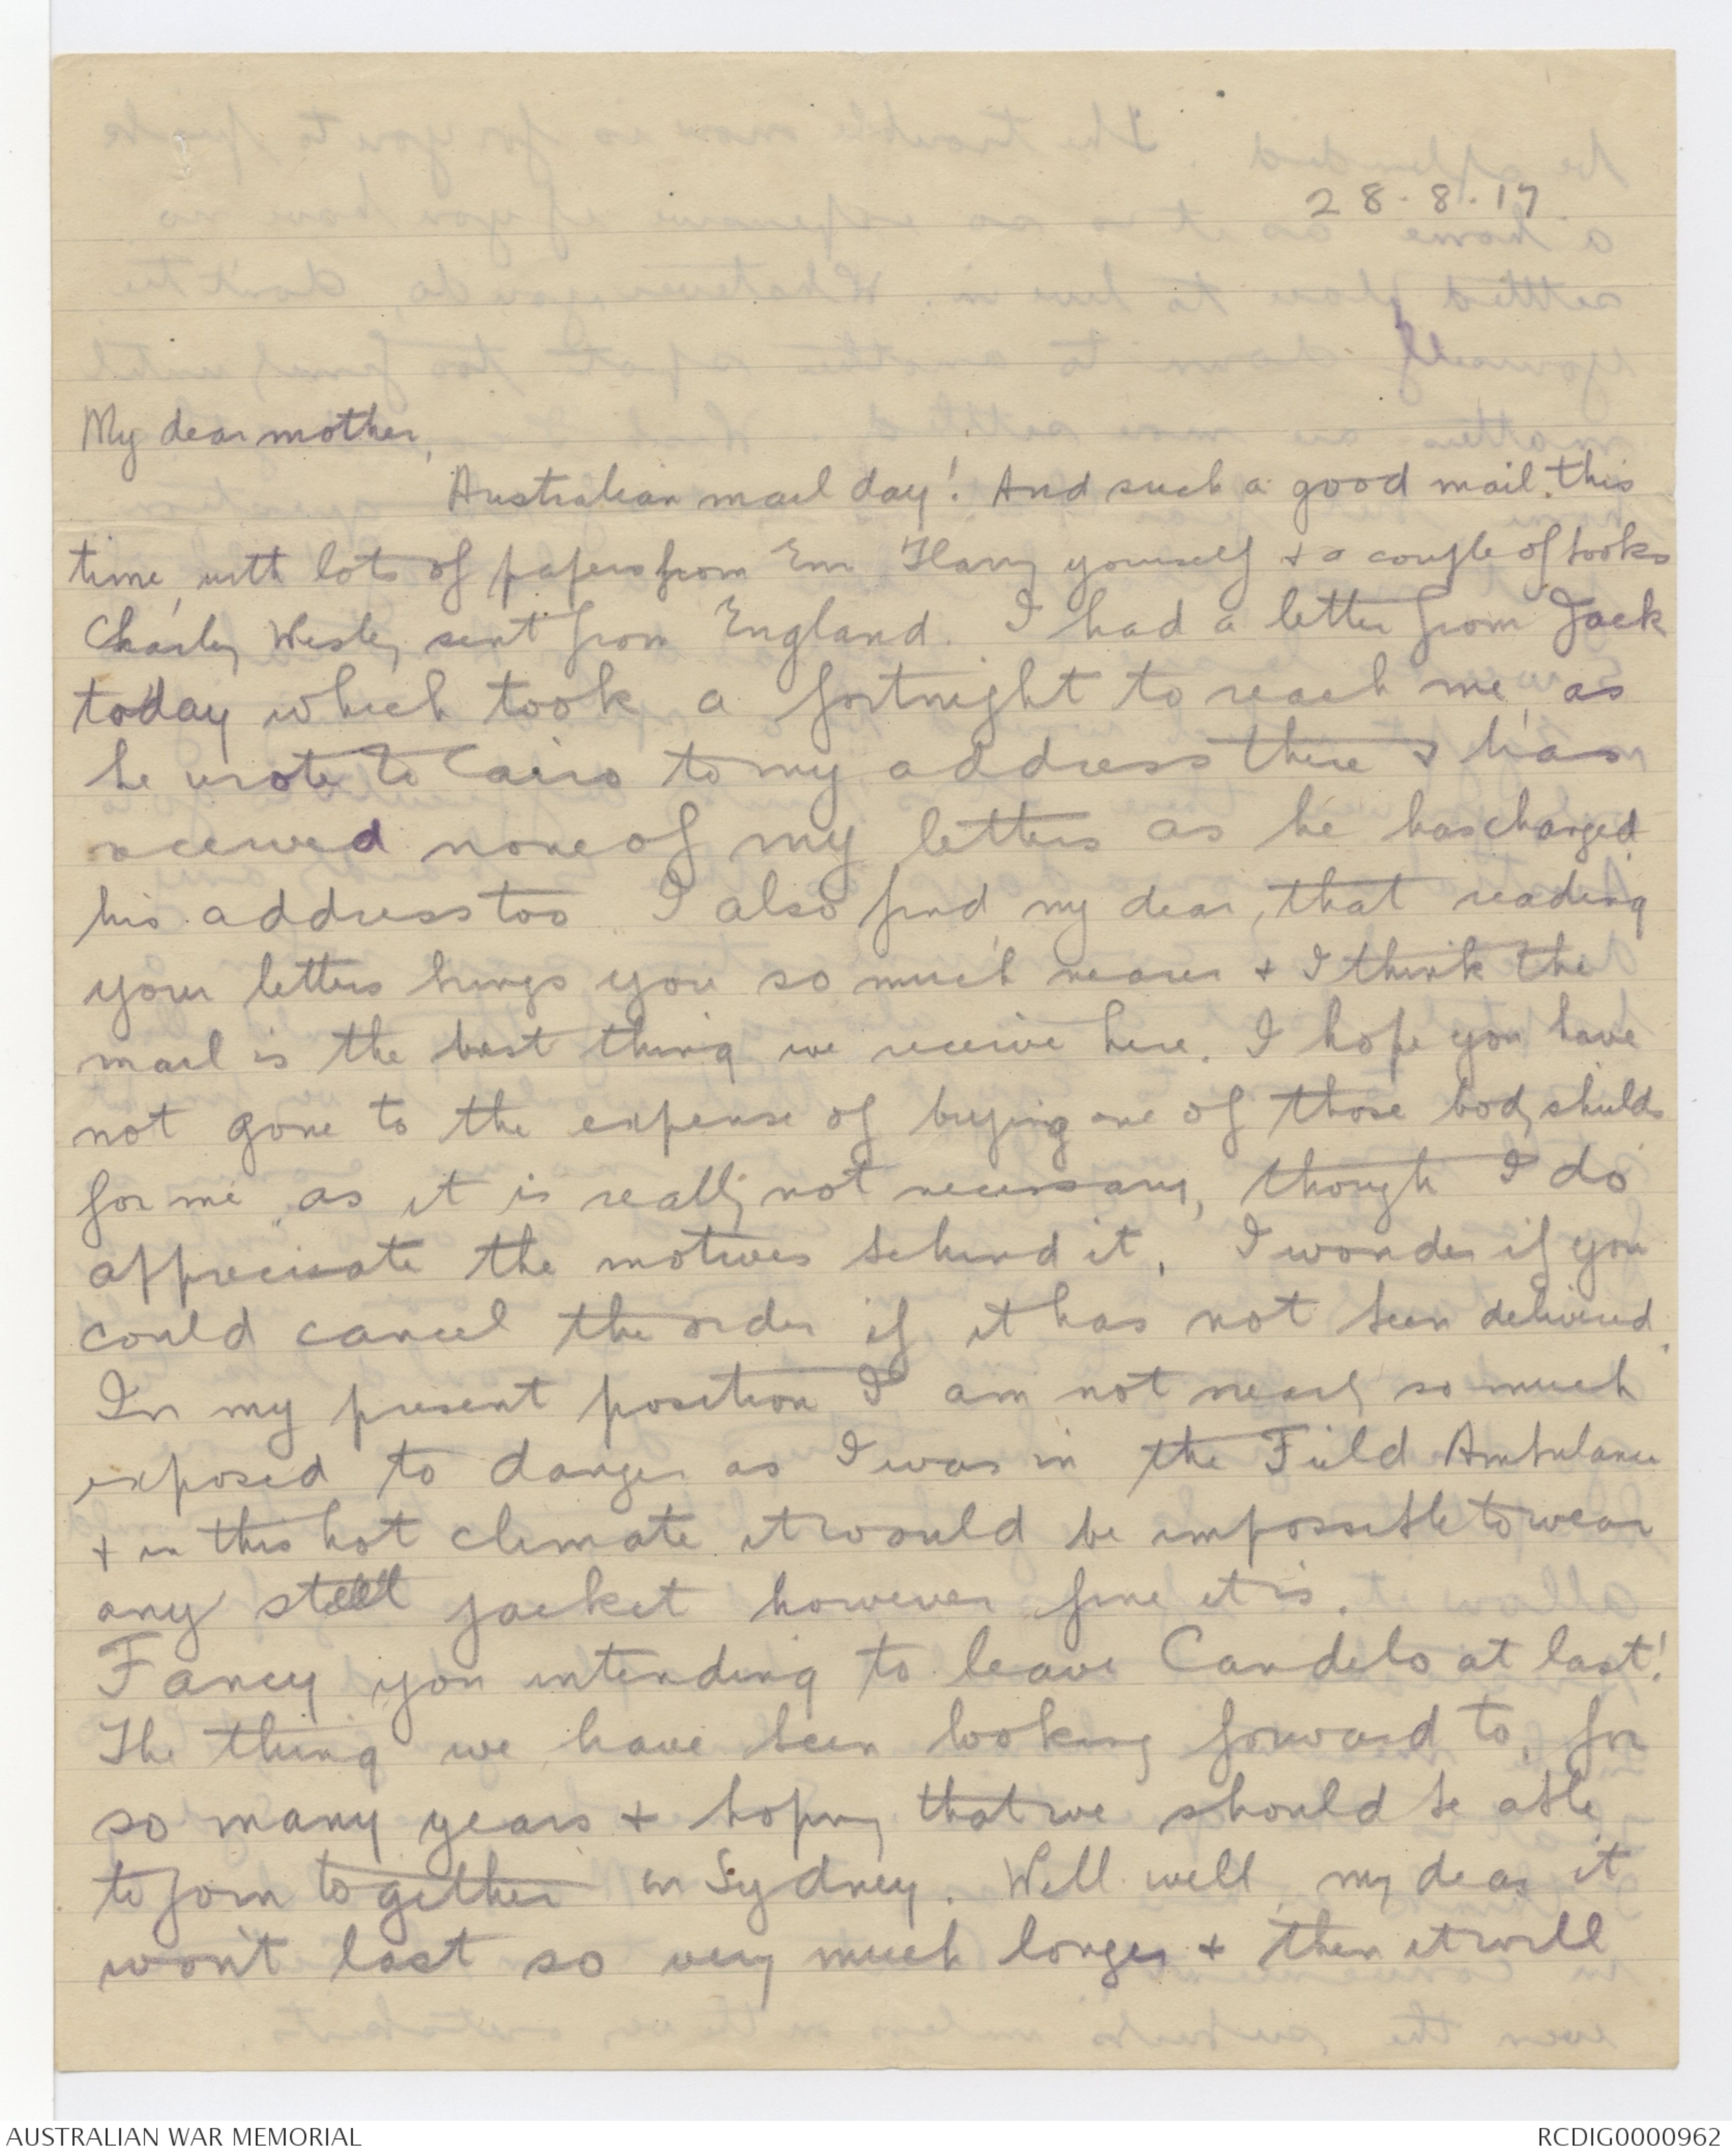 28.8.17
My dear mother,
Australian mail day! And such a good mail this
time, with lots of papers from Em Harry yourself & a couple of books
Charley Wesley sent from England. I had a letter from Jack
today which took a fortnight to reach me, as
he wrote to Cairo to my address there & has
received none of my letters as he has changed
his address too. I also find, my dear, that reading
your letters brings you so much nearer & I think the
mail is the best thing we receive here. I hope you have
not gone to the expense of buying one of those body shields
for me, as it is really not necessary, though I do
appreciate the motives behind it. I wonder if you
could cancel the order if it has not been delivered.
In my present position I am not nearly so much
exposed to danger as I was in the Field Ambulance
& in this hot climate it would be impossible to wear
any steel jacket however fine it is.
Fancy you intending to leave Candelo at last!
The thing we have been looking forward to, for
so many years & hoping that we should be able
to join together in Sydney. Well well, my dear it
won't last so very much longer & then it will
AUSTRALIAN WAR MEMORIAL
RCDIG0000962